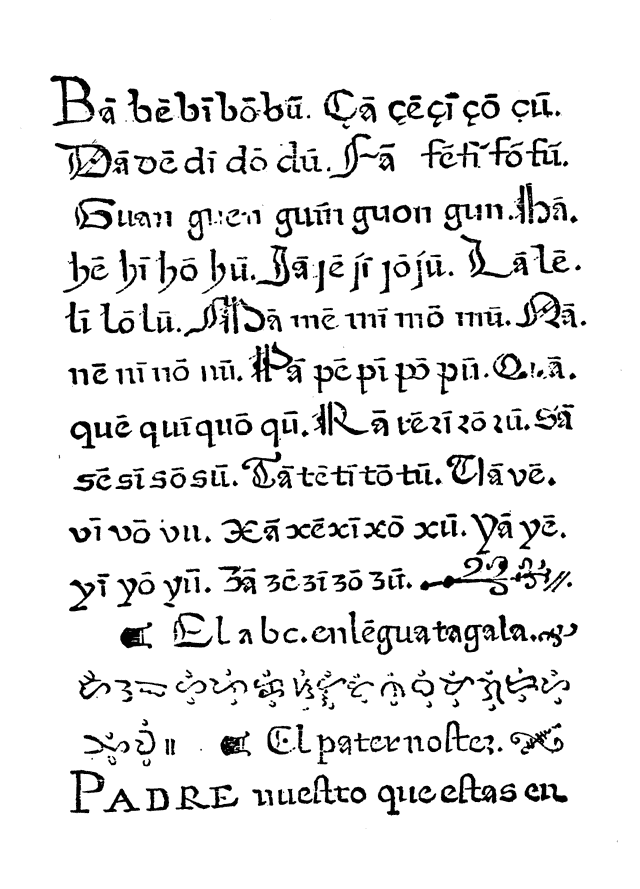 Bā bē bī bō bū. Çā çē çī çō çū.
Dā dē dī dō dū. Fā fē fī fō fū.
Guan guen guin guon gun. Hā.
hē hī hō hū. Jā jē jī jō jū. Lā lē.
lī lō lū. Mā mē mī mō mū. Nā.
nē nī nō nū. Pā pē pī pō pū. Quā.
quē quī quō qū. Rā rē rī rō rū. Sā
sē sī sō sū. Tā tē tī tō tū. Uā vē.
vī vō vū. Xā xē xī xō xū. Yā yē.
yī yō yū. Zā zē zī zō zū.
El abc. en lēgua tagala.
El pater noſter.
PADRE nueſtro que eſtas en